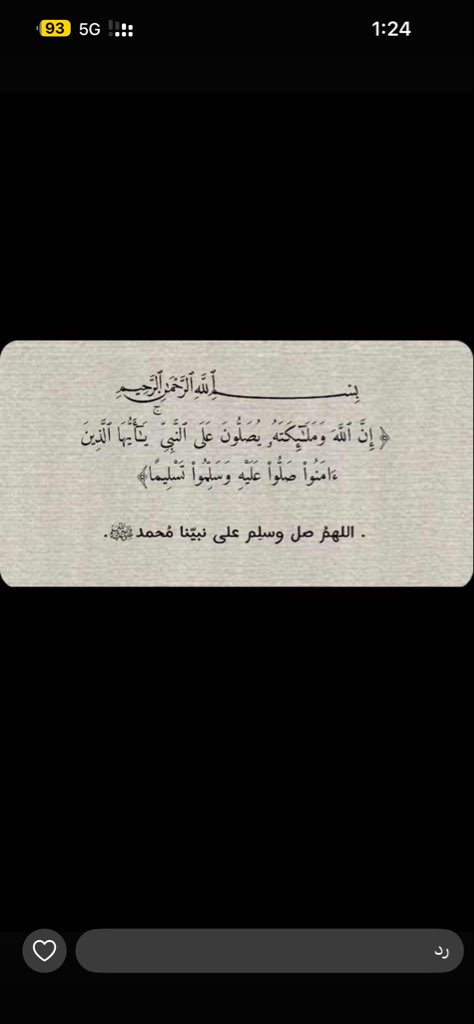 93 5G 1:24
بِسْمِ ٱللَّهِ ٱلرَّحْمَٰنِ ٱلرَّحِيمِ
﴿ إِنَّ ٱللَّهَ وَمَلَـٰٓئِكَتَهُۥ يُصَلُّونَ عَلَى ٱلنَّبِىِّ ۚ يَـٰٓأَيُّهَا ٱلَّذِينَ
ءَامَنُوا۟ صَلُّوا۟ عَلَيْهِ وَسَلِّمُوا۟ تَسْلِيمًا﴾
. اللهمُ صل وسلِم على نبيّنا مُحمد ﷺ.
رد